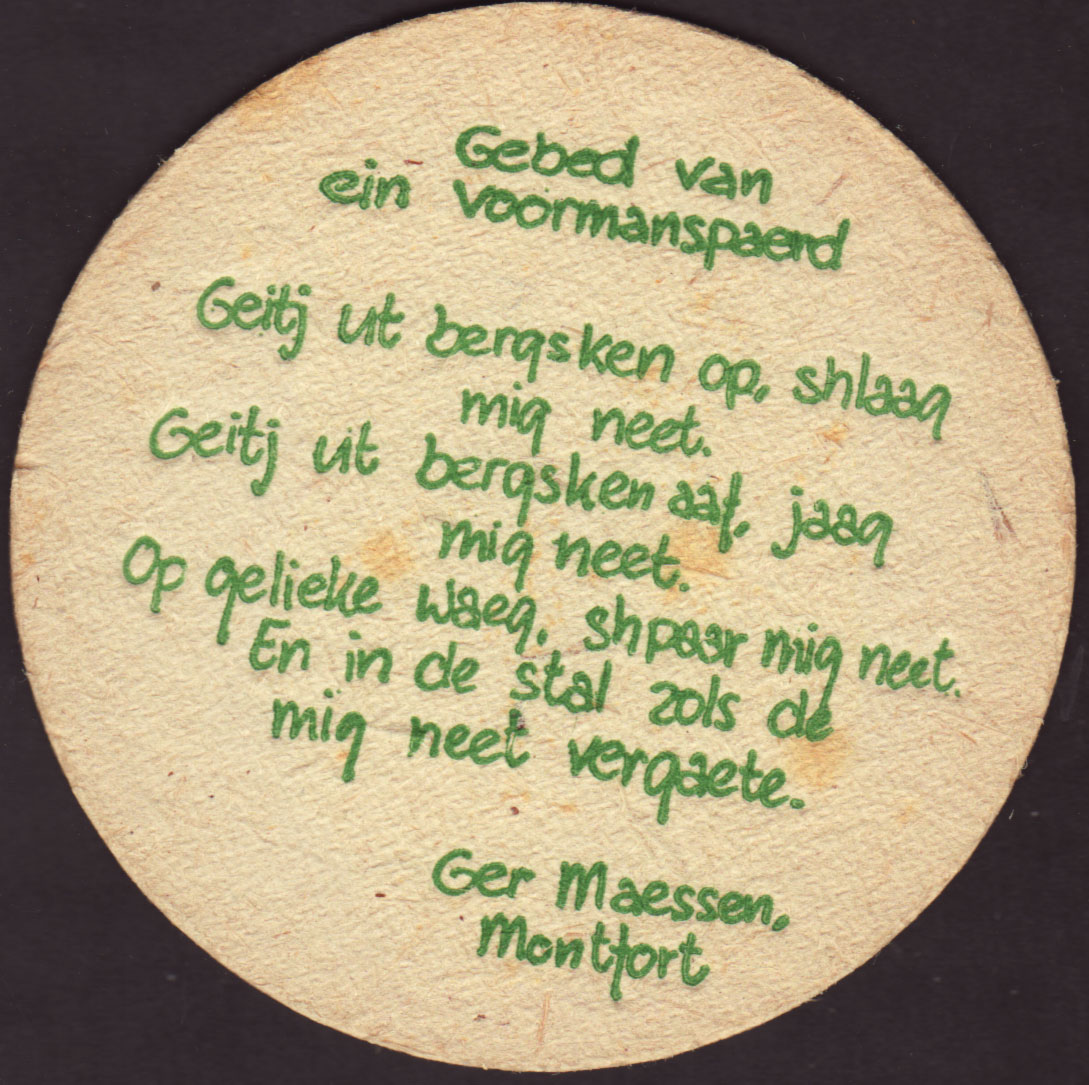 Gebed van
ein voormanspaerd
Geitj ut bergsken op, shlaag
mig neet.
Geitj ut bergsken aaf, jaag
mig neet.
Op gelieke waeg, shpaar mig neet.
En in de stal zols de
mig neet vergaete.
Ger Maessen,
Montfort